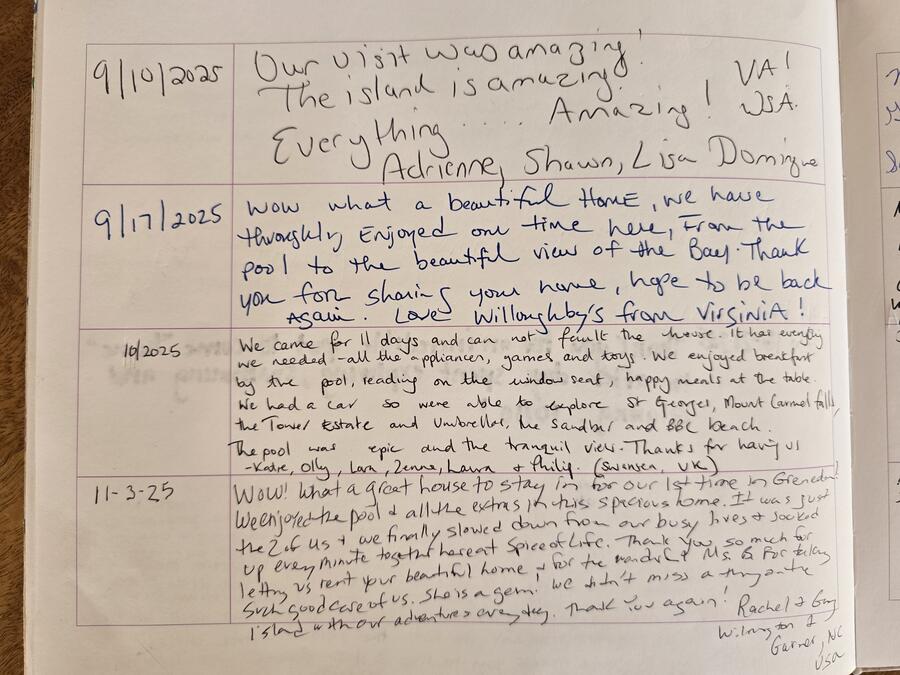 9/10/2025
Our visit was amazing!
The island is amazing! VA!
Everything .... Amazing! USA.
Adrienne, Shawn, Lisa Domingue
9/17/2025
Wow what a beautiful Home, we have
throughly Enjoyed our time here, From the
pool to the beautiful view of the Bay. Thank
you for sharing your home, hope to be back
Again. Love Willoughby's from Virginia!
10/2025
We came for 11 days and can not fault the house. It has everything
we needed - all the appliances, games and toys. We enjoyed breakfast
by the pool, reading on the window seat, happy meals at the table.
We had a car so were able to explore St Georges, Mount Carmel falls,
the Tower Estate and Umbrellas, the Sandbar and BBC beach.
The pool was epic and the tranquil view. Thanks for having us
- Katie, Olly, Lara, Zenna, Laura & Philip. (Swansea, UK)
11-3-25
WOW! What a great house to stay in for our 1st time in Grenada!
We enjoyed the pool & all the extras in this spacious home. It was just
the 2 of us & we finally slowed down from our busy lives & soaked
up every minute together here at Spice of Life. Thank you so much for
letting us rent your beautiful home & for the wonderful Ms. B. For taking
such good care of us. She is a gem! We didn't miss a thing on the
island with our adventures everyday. Thank You again! Rachel & Guy
Wilmington &
Garner, NC
USA